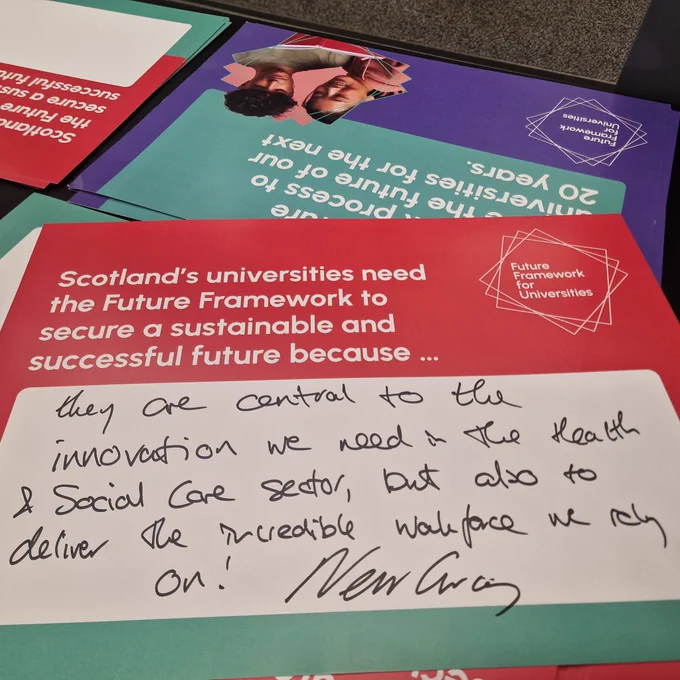 Scotland
the Future
secure a
successful
Future
Framework
for
Universities
process to
the future of our
universities for the next
20 years.
Scotland's universities need
the Future Framework to
secure a sustainable and
successful future because ...
Future
Framework
for
Universities
they are central to the
innovation we need in the Health
& Social Care sector, but also to
deliver the incredible workforce we rely
on! Neil Gray